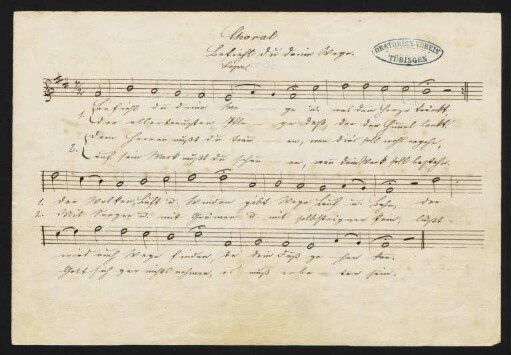 Choral
Befiehl du deine Wege.
ORATORIEN-VEREIN
TÜBINGEN
1. Befiehl du deine We - ge u. was dein Herze kränkt,
der allertreusten Pfle - ge deß, der den Himel lenkt.
2. Dem Herren mußt du trau - en, wenn dir's soll wohl ergehn,
auf sein Werk mußt du schau - en, wenn dein Werk soll bestehn.
1. Der Wolken, Luft u. Winden gibt Wege Lauf u. Bahn, der
2. Mit Sorgen u. mit Grämen u. mit selbsteigner Pein, läßt
wird auch Wege finden, da dein Fuß ge - hen kan.
Gott sich gar nichts nehmen, es muß erbe - ten sein.